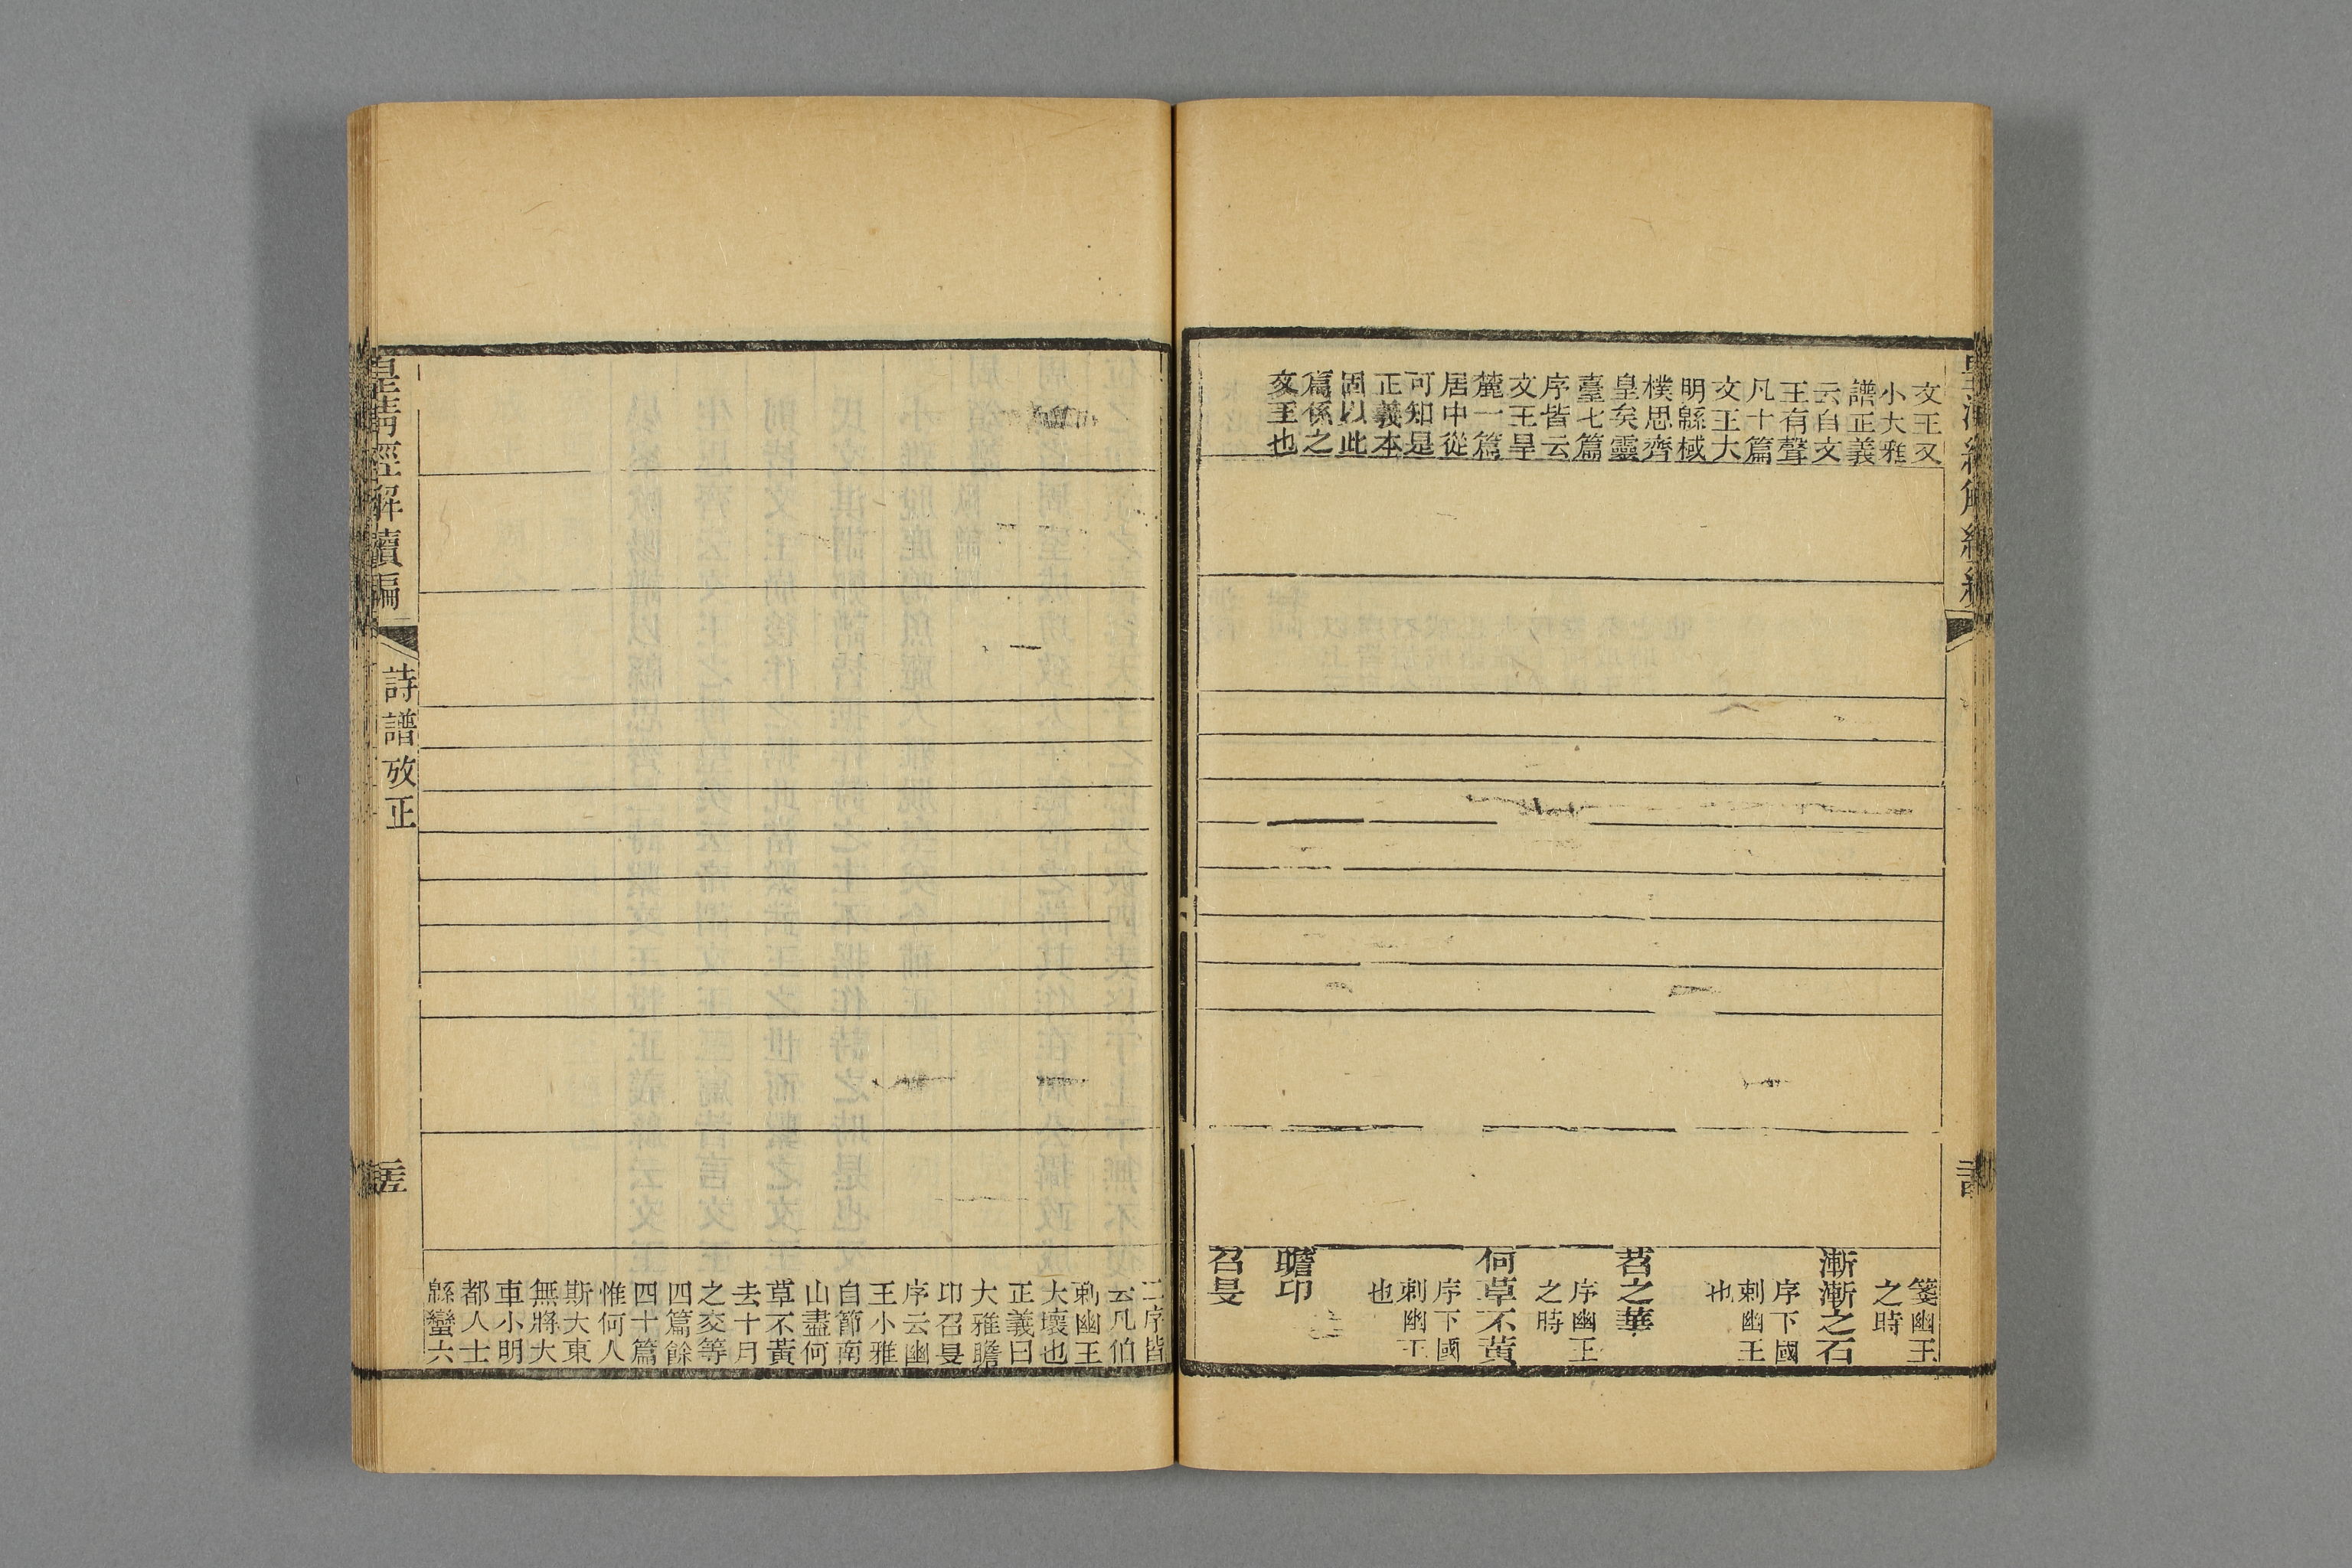 文王又
小大雅
譜正義
云自文
王有聲
凡十篇
文王大
明緜棫
樸思齊
皇矣靈
臺七篇
序皆云
文王旱
麓一篇
居中從
可知是
正義本
固以此
篇係之
文王也
箋幽王
之時
漸漸之石
序下國
刺幽王
也
苕之華
序幽王
之時
何草不黃
序下國
刺幽王
也
瞻卬
召旻
二序皆
云凡伯
刺幽王
大壞也
正義曰
大雅瞻
卬召旻
序云幽
王小雅
自節南
山盡何
草不黃
去十月
之交等
四篇餘
四十篇
惟何人
斯大東
無將大
車小明
都人士
緜蠻六
皇清經解續編
詩譜攷正